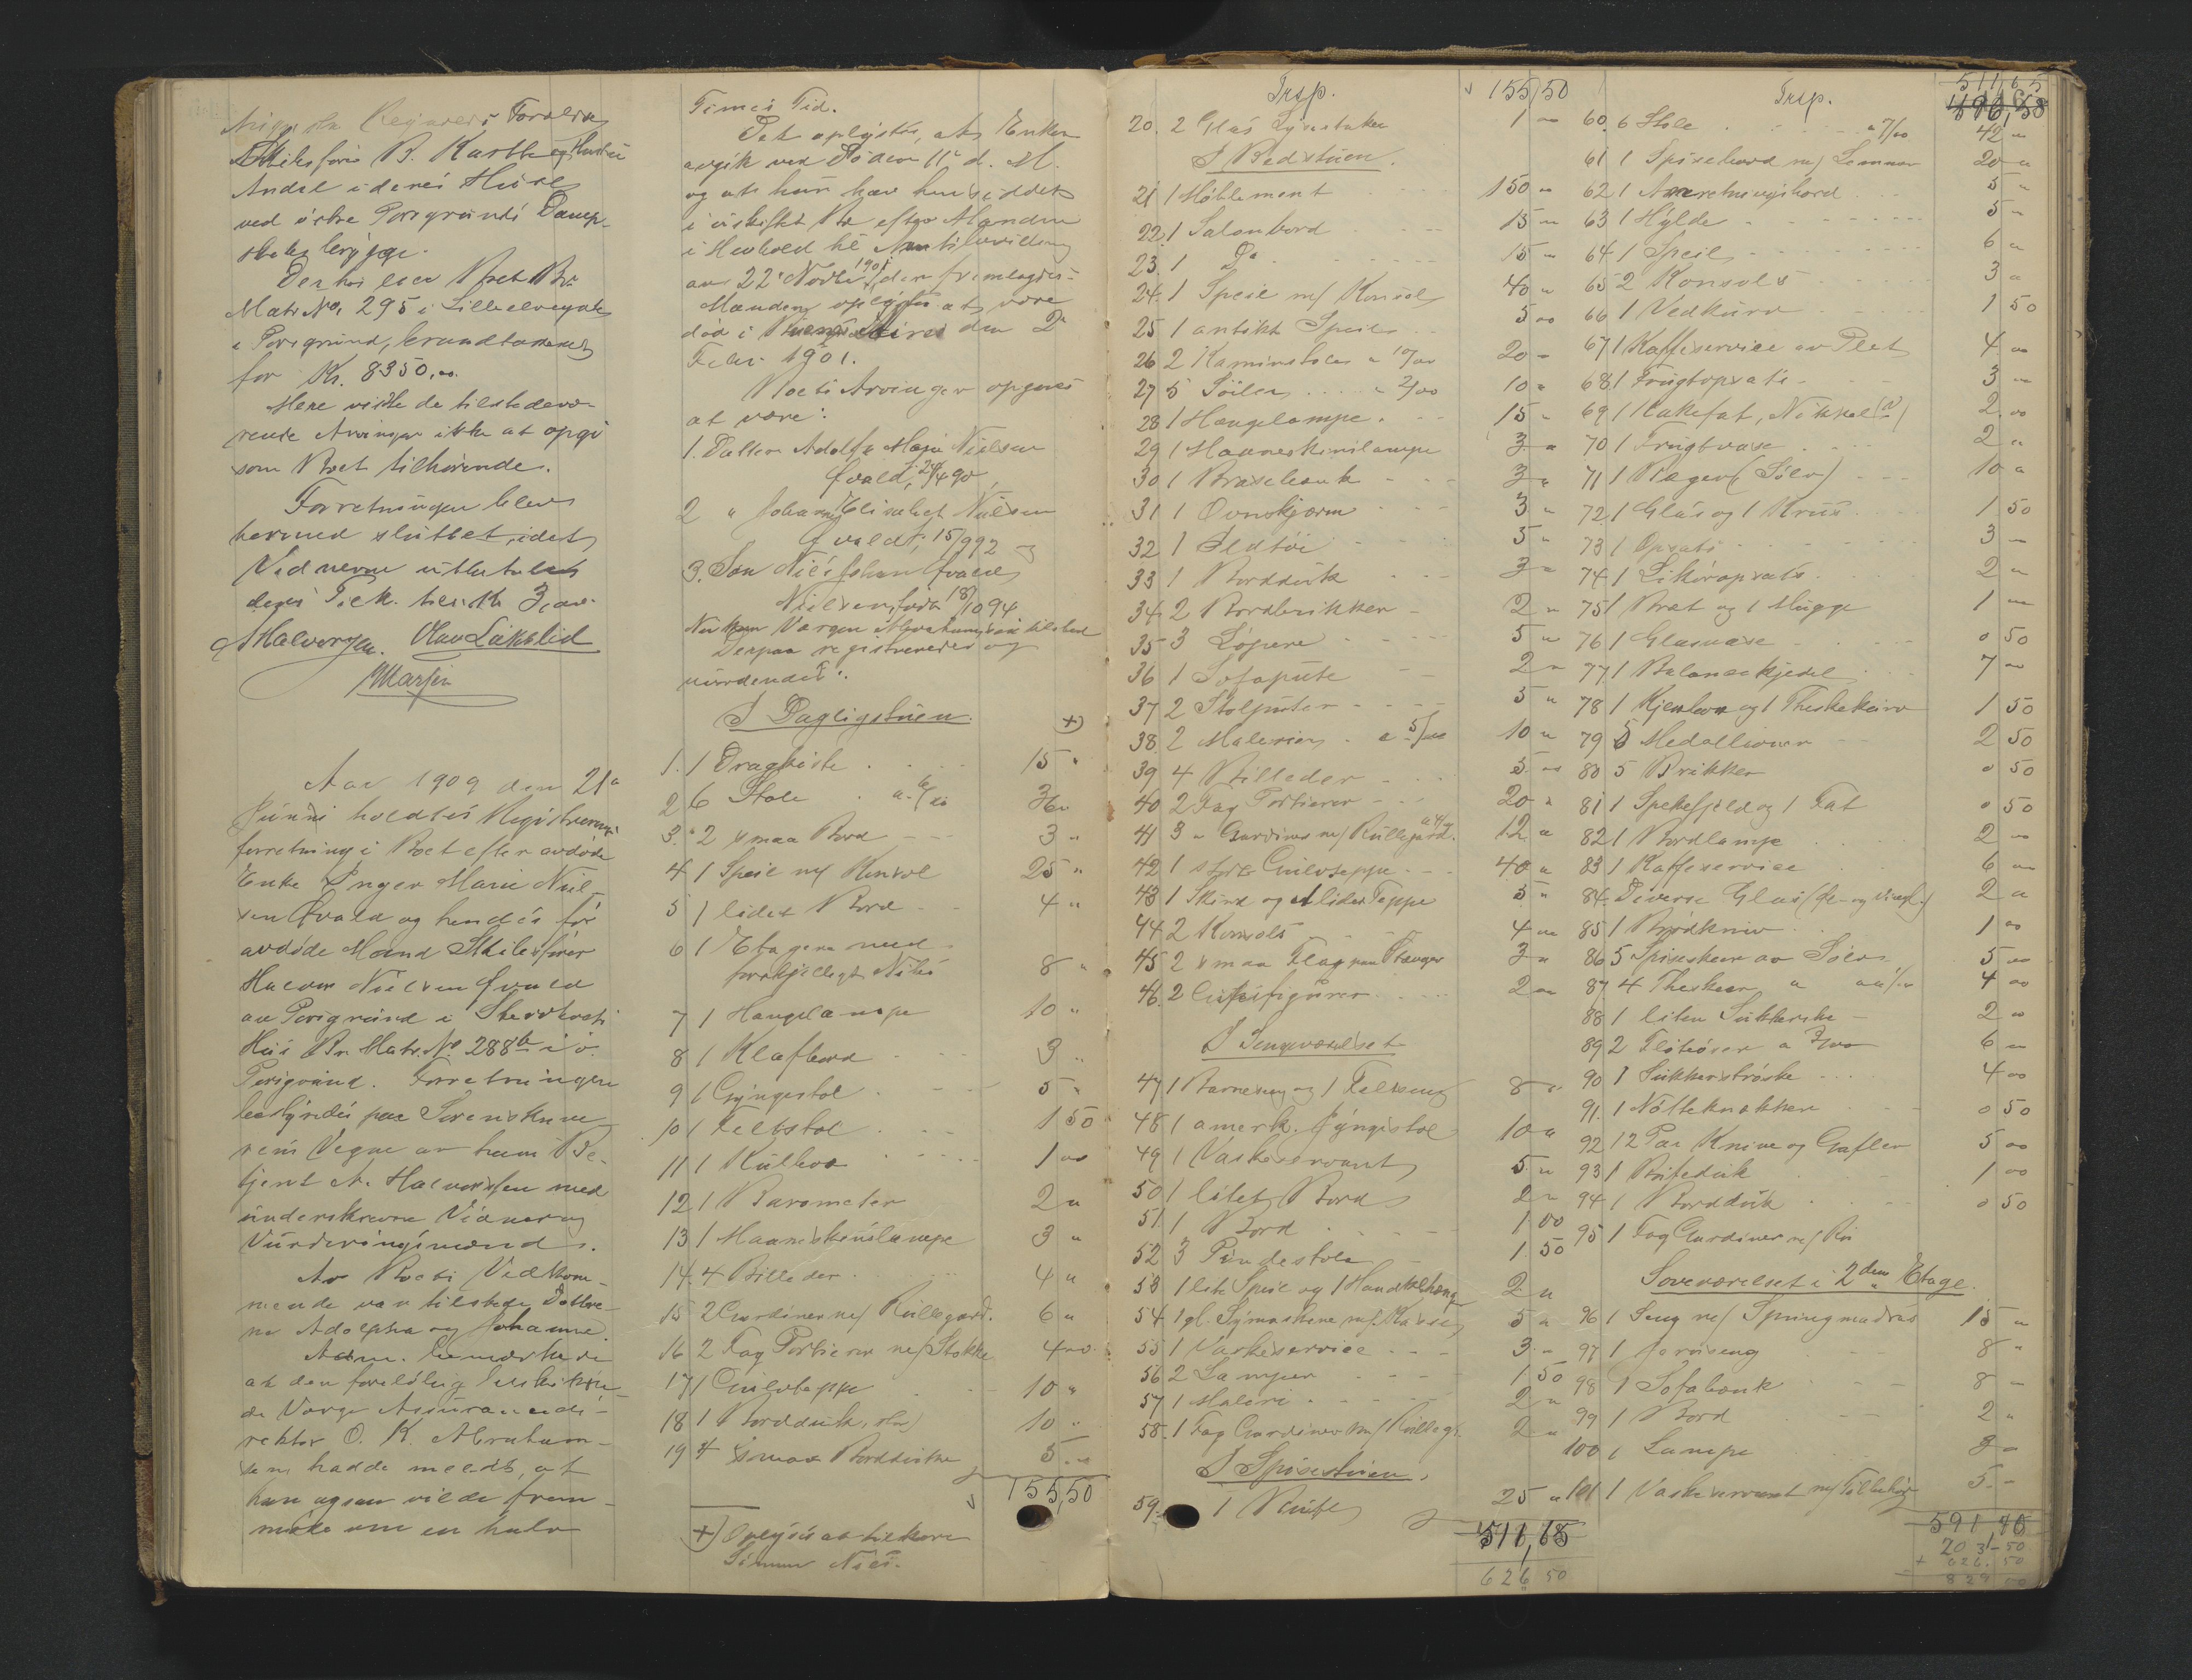 Skibsfører B. Karlbeg
Andel i deres Huse
ved østre Porsgrunds Damp-
skibsbrygge.
Derhos eier Boet Br.
Matr No. 295 i Lilleelvegaten
i Porsgrund, brandtakseret
for Kr. 8350,00.
Mere vidste de tilstedevæ-
rende Arvinger ikke at opgi
som Boet tilhørende.
Forretningen blev
hermed sluttet, idet
Vidnerne
A Halvorsen. Olav Liknlid
Aar 1909 den 21a
Juni holdtes Registrerings
forretning i Boet efter avdøde
Enke Inger Marie Niel-
sen Qvald og hendes før
avdøde Mand Skibsfører
Halvor Nielsen Qvald
av Porsgrund i Sterkbets
Hus Br. Matr. No. 288b i ø.
Porsgrund. Forretningen
bestyredes paa Sorenskrive
rens Vegne av hans Be-
tjent A. Halvorsen med
underskrevne Vidner og
Vurderingsmænd.
Av Boets Vedkom-
mende var tilstede Døttre-
ne Adolpha og Johanne.
Adm. bemærkede
at den foreløbig beskikke-
de Verge Assurancedi-
rektør O. K. Abraham-
sen hadde meldt, at
han ogsaa vilde frem-
møte om en halv
Times Tid.
Det oplystes, at Enken
avgik ved Døden 11te d. M.
og at hun har hensiddet
i uskiftet Bo efter Manden
i Henhold til Amtsbevilling
av 22 Novbr 1901, der fremlagdes.
Manden oplystes at være
død i Buenos Aires den 2
Febr. 1901.
Boets Arvinger opgaves
at være:
1. Datter Adolfa Marie Nielsen
Qvald, f. 24/4 90,
2 " Johanne Elisabet Nielsen
Qvald f. 15/9 92
3. Søn Nils Johan Qvald
Nielsen, født 18/10 94
Nu kom Vergen Abrahamsen tilstede
Derpaa registreredes og
vurderedes:
I Dagligstuen. +)
1. 1 Dragkiste 15 "
2 6 Stole a 6/00 36 "
3. 2 smaa Bord 3 "
4 1 Speil m/ Konsol 25 "
5 1 lidet Bord 4 "
6 1 Etagere med
forskjelligt Nips 8 "
7 1 Hængelampe 10 "
8 1 Klafbord 3 "
9 1 Gyngestol 5 "
10 1 Feltstol 1 50
11 1 Kulbox 1 00
12 1 Barometer 2 "
13 1 Maaneskinslampe 3 "
14. 4 Billeder 4 "
15 2 Gardiner m/ Rullegard. 6 "
16 2 Fag Portierer m/ Stokke 4 00
17 1 Gulvteppe 10 "
18 1 Bordduk 10 "
19 4 smaa Bordduke 5 "
155,50
+) Oplyses at tilhøre
Sønnen Nils.
Trsp. 155,50
20. 2 Glas Lysestaker 1 00
I Bedstuen.
21 1 Møblement 150 "
22. 1 Salonbord 15 "
23. 1 Do 15 "
24. 1 Speil m/ Konsol 40 "
25 1 antikt Speil 5 00
26 2 Kaminstoler a 10/00 20 "
27 5 Söiler a 2/00 10 "
28 1 Hængelampe. 15 "
29 1 Maaneskinslampe 3 "
30 1 Braxebænk 3 "
31 1 Ovnskjærm 3 "
32 1 Ildtøi 5 "
33 1 Bordduk 3 "
34 2 Bordbrikker 2 "
35 3 Løpere 5 "
36 1 Sofapute 2 "
37 2 Stolputer 5 "
38. 2 Malerier a 5/00 10 "
39 4 Billeder 5 00
40 2 Fag Portierer 20 "
41 3 " Gardiner m/ Rullegard. a 4/00 12 "
42 1 stort Gulvteppe 40 "
43 1 Skind og 1 lidet Teppe 5 "
44 2 Konsols 4 00
45 2 smaa Flag paa Stænger 3 "
46. 2 Gipsfigurer 2 00
I Sengeværelset
47 1 Barneseng og 1 Feltseng 8 "
48 1 amerk. Gyngestol 10 "
49 1 Vaskeservant 5 "
50 1 litet Bord 2 "
51. 1 Bord 1 00
52 3 Pindestole 1 50
53 1 lite Speil og 1 Handklehænger 2 "
54 1 gl. Symaskine m/ Kasse 5 "
55 1 Vaskeservice 3 "
56 2 Lamper 1 50
57 1 Maleri 2 "
58. 1 Fag Gardiner m/ Rullegr. 2 "
I Spisestuen.
59. 1 Buffet 25 "
511,65
626 50
Trsp. 511,65
60. 6 Stole a 7/00 42 "
61 1 Spisebord m/ Lemmer 20 "
62 1 Anretningsbord 5 "
63 1 Hylde 5 "
64 1 Speil 6 "
65 2 Konsols 3 "
66 1 Vedkurv 1 50
67 1 Kaffeservice av Plet 4 00
68 1 Frugtopsats 3 00
69 1 Kakefat, Nikkel (?) 2 00
70 1 Frugtvase 2 "
71 1 Bæger (Sølv) 10 "
72 1 Glas og 1 Krus 1 50
73 1 Opsats 3 "
74 1 Likøropsats 2 "
75 1 Bret og 1 Mugge 1 "
76 1 Glasvase 0 50
77 1 Balancekjedel 7 "
78 1 Kjenlom og 1 Theskekurv 1 50
79 5 Medallioner 2 50
80 5 Brikker 0 50
81 1 Spekefjeld og 1 Fat 0 50
82 1 Bordlampe 2 00
83 1 Kaffeservice 6 00
84. Diverse Glas (Øl- og Vingl.) 2 "
85 1 Brødkniv 1 00
86 5 Spiseskeer av Sølv 5 00
87 4 Theskeer " a 1/00 4 00
88 1 liten Sukkerske 2 00
89 2 Fløteøser a 3/00 6 "
90 1 Sukkerstrøske 4 00
91. 1 Nøtteknækker 0 50
92 12 Par Knive og Gafler 5 00
93 1 Buffeduk 1 00
94 1 Bordduk 0 50
95 1 Fag Gardiner m/
Soveværelset i 2den Etage.
96 1 Seng m/ Springmadras 15 "
97 1 Jernseng 8 "
98 1 Sofabænk 8 "
99 1 Bord 2 "
100 1 Lampe 3 "
101 1 Vaskeservant m/ Tilbehør 5 "
203 50
+ 626. 50
829 00